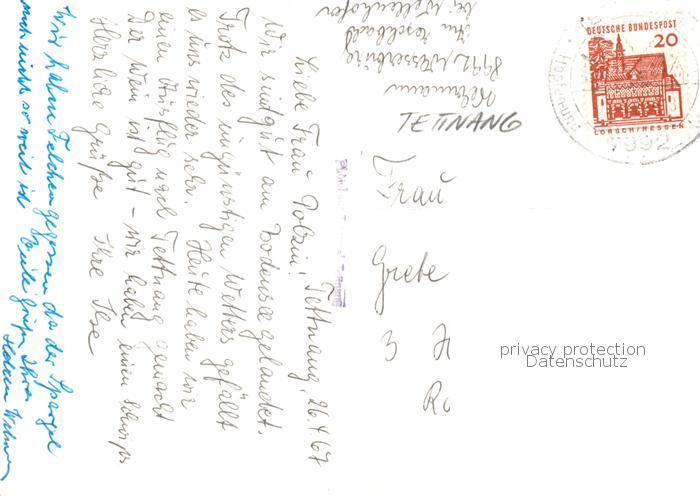 Tettnang, 26.4.67
Liebe Frau
Wir sind gut am Bodensee gelandet.
Trotz des ungünstigen Wetters gefällt
es uns wieder sehr. Heute haben wir
einen Ausflug nach Tettnang gemacht
Der Wein ist gut - wir haben einen
Herzliche Grüße Ihre Ilse
Wir haben Felchen gegessen da der Spargel
noch nicht so weit ist Viele Grüße Ihre
8992 Wasserburg
TETTNANG
DEUTSCHE BUNDESPOST
20
LORSCH/HESSEN
7992
Frau
Grete
3 H
Ro
privacy protection
Datenschutz